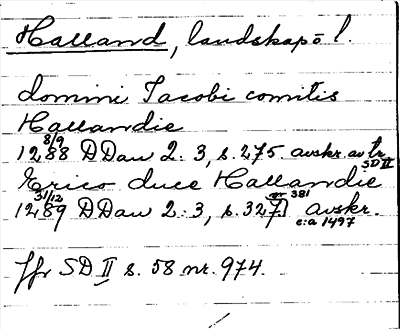 Halland, landskapō l.
domini Jacobi comitis
Hallandie
8/9
1288 DDan 2:3, s.275 avskr. av tr. SD II
Erico duce Hallandie
31/12 nr 381
1289 DDan 2:3, s.327] avskr. c:a 1497
Jfr SD II s. 58 nr. 974.